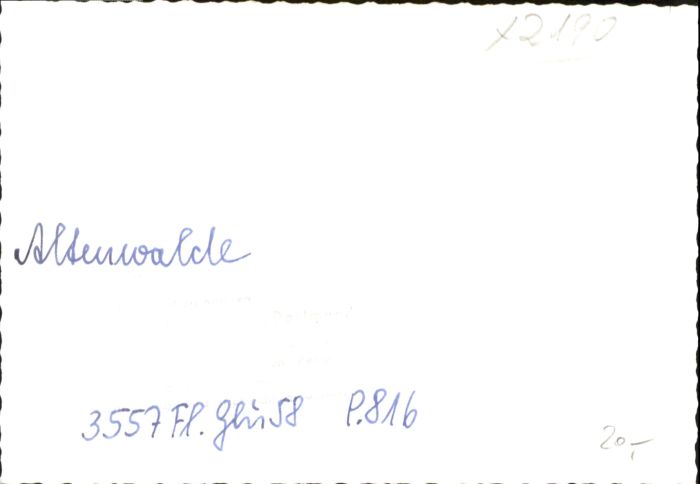 x2190
Altenwalde
3557 Fl. P.816
20,-